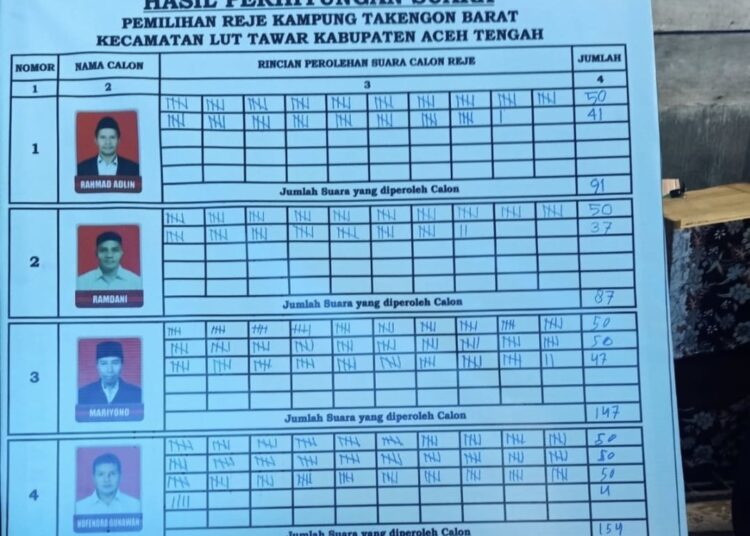 HASIL PERHITUNGAN SUARA
PEMILIHAN REJE KAMPUNG TAKENGON BARAT
KECAMATAN LUT TAWAR KABUPATEN ACEH TENGAH
NOMOR NAMA CALON RINCIAN PEROLEHAN SUARA CALON REJE JUMLAH
1 2 3 4
50
41
1
RAHMAD ADLIN
Jumlah Suara yang diperoleh Calon 91
50
37
2
RAMDANI
Jumlah Suara yang diperoleh Calon 87
50
50
47
3
MARIYONO
Jumlah Suara yang diperoleh Calon 147
50
50
50
4
4
NOFENDRA GUNAWAN
Jumlah Suara yang diperoleh Calon 154